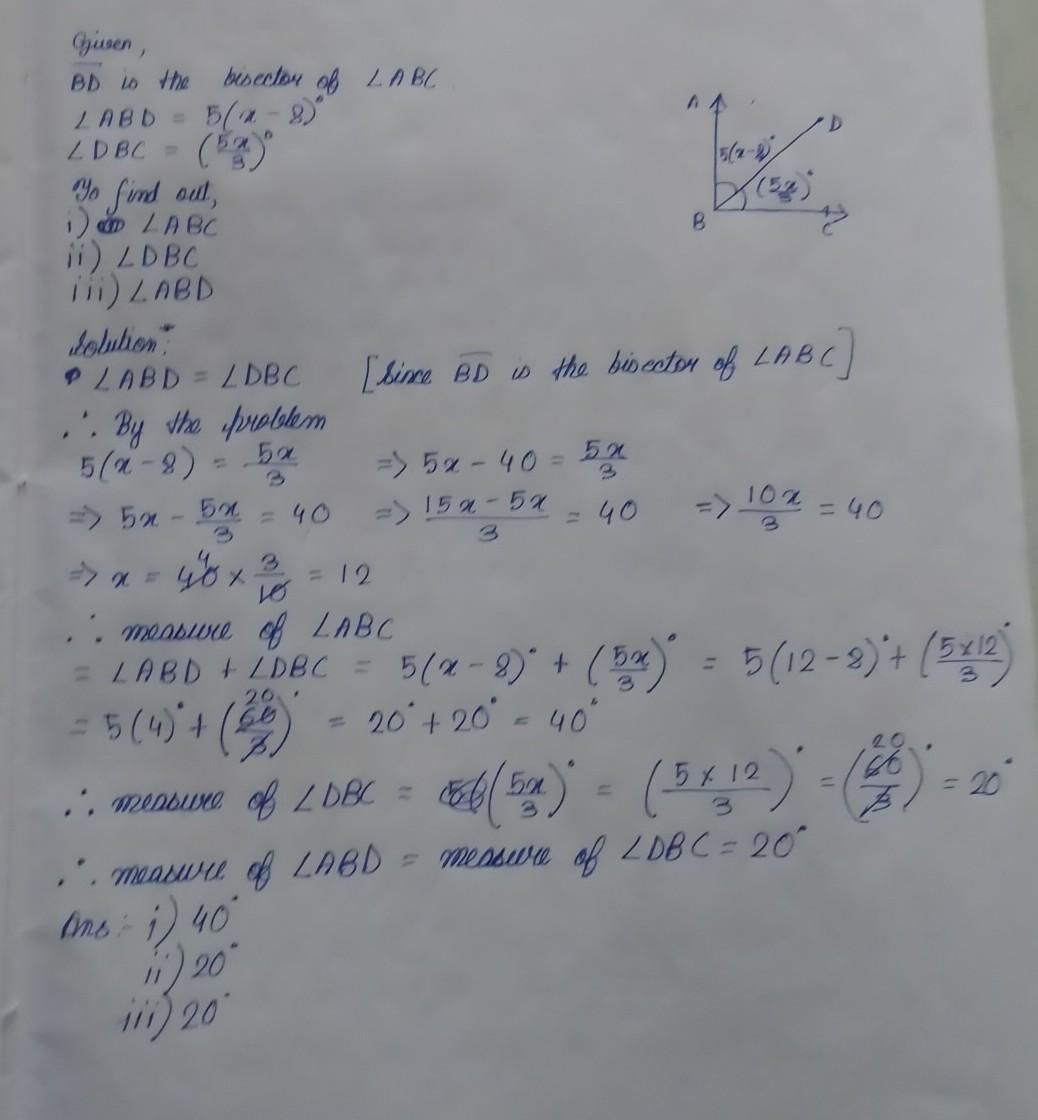 Given,
BD is the bisector of ∠ABC
∠ABD = 5(x - 8)°
∠DBC = (5x/3)°
To find out,
i) ∠ABC
ii) ∠DBC
iii) ∠ABD
A
D
5(x-8)°
(5x/3)°
B
C
Solution:
∠ABD = ∠DBC [Since BD is the bisector of ∠ABC]
∴ By the problem
5(x-8) = 5x/3 => 5x - 40 = 5x/3
=> 5x - 5x/3 = 40 => 15x - 5x/3 = 40 => 10x/3 = 40
=> x = 40 4 × 3/10 = 12
∴ measure of ∠ABC
= ∠ABD + ∠DBC = 5(x - 8)° + (5x/3)° = 5(12-8)° + (5×12/3)°
= 5(4)° + (20 60/3)° = 20° + 20° = 40°
∴ measure of ∠DBC = (5x/3)° = (5 × 12/3)° = (20 60/3)° = 20°
∴ measure of ∠ABD = measure of ∠DBC = 20°
Ans :- i) 40°
ii) 20°
iii) 20°